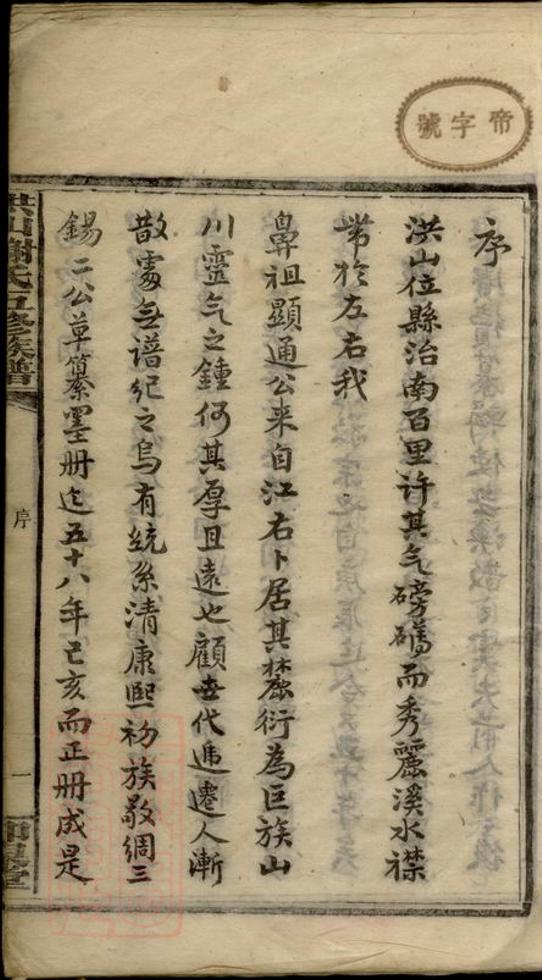 帝字號
序
洪山位縣治南百里许其气磅礴而秀麗溪水襟
帶於左右我
鼻祖顯通公来自江右卜居其麓衍為巨族山
川靈气之鍾何其厚且遠也顧世代逓遷人漸
散處無谱纪之烏有統系清康熙初族敬綢三
錫二公草纂墨册迄五十八年己亥而正册成是
洪山謝氏五修族譜
序
一